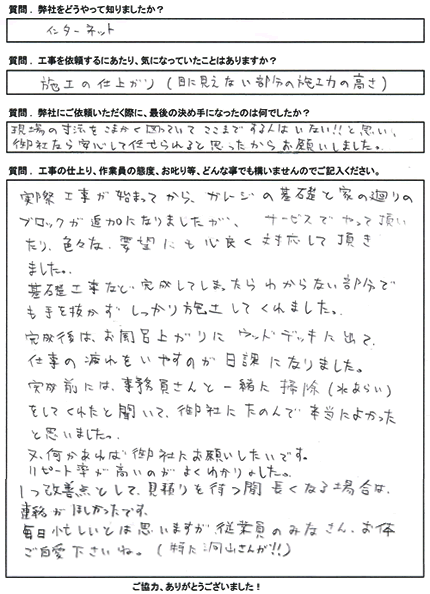 質問．弊社をどうやって知りましたか？
インターネット
質問．工事を依頼するにあたり、気になっていたことはありますか？
施工の仕上がり（目に見えない部分の施工力の高さ）
質問．弊社にご依頼いただく際に、最後の決め手になったのは何でしたか？
現場の寸法をこまかく図っていてここまでする人はいない!!と思い、
御社なら安心して任せられると思ったからお願いしました。
質問．工事の仕上り、作業員の態度、お叱り等、どんな事でも構いませんのでご記入ください。
実際工事が始まってから、ガレージの基礎と家の廻りの
ブロックが追加になりましたが、サービスでやって頂い
たり、色々な、要望にも心良く対応して頂き
ました。
基礎工事など完成してしまったらわからない部分で
も手を抜かずしっかり施工してくれました。
完成後は、お風呂上がりにウッドデッキに出て、
仕事の疲れをいやすのが日課になりました。
完成前には、事務員さんと一緒に掃除（水あらい）
をしてくれたと聞いて、御社にたのんで本当によかった
と思いました。
又、何かあれば御社にお願いしたいです。
リピート率が高いのがよくわかりました。
1つ改善点として、見積りを待つ間長くなる場合は、
連絡がほしかったです。
毎日忙しいとは思いますが、従業員のみなさん、お体
ご自愛下さいね。（特に河山さんが!!）
ご協力、ありがとうございました！